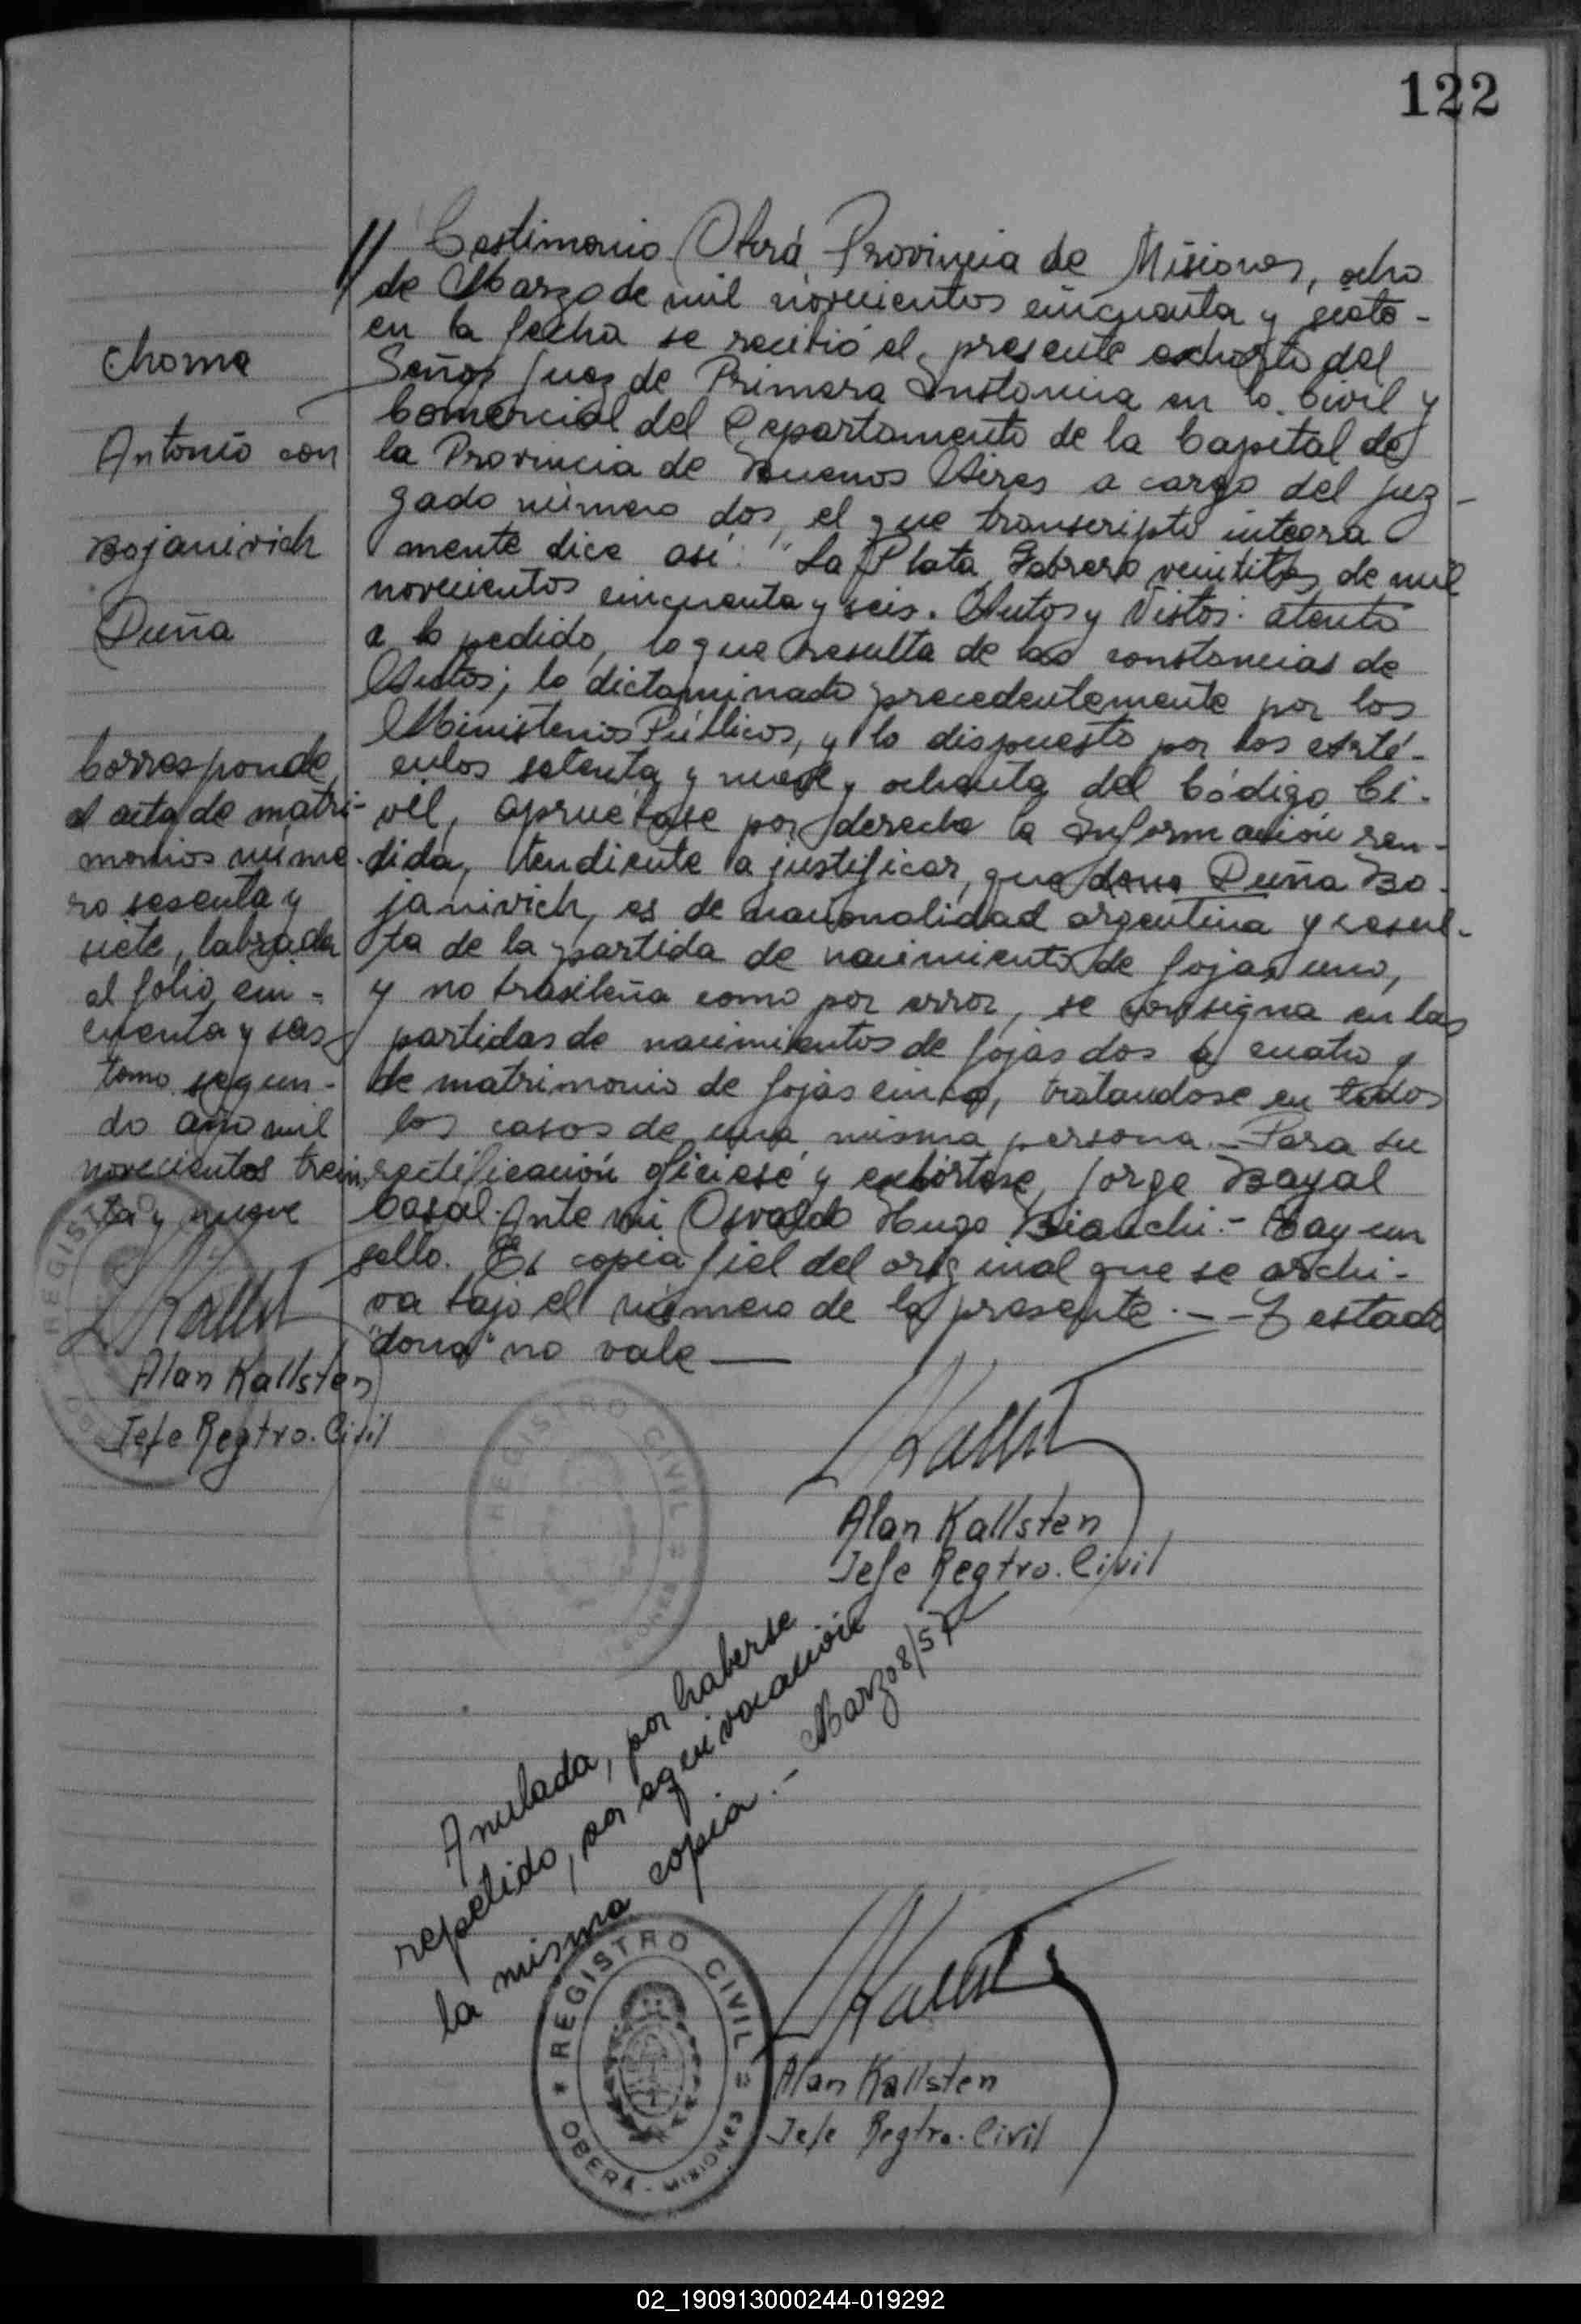 122
Choma
Antonio con
Bojanivich
Duña
Corresponde
al acta de matri-
monios núme-
ro sesenta y
siete, labrada
al folio cin-
cuenta y seis
tomo segun-
do año mil
novecientos trein-
ta y nueve
Alan Kallsten
Jefe Regtro. Civil
Testimonio. Oberá, Provincia de Misiones, ocho
de Marzo de mil novecientos cincuenta y siete -
en la fecha se recibió el presente exhorto del
Señor Juez de Primera Instancia en lo Civil y
Comercial del Departamento de la Capital de
la Provincia de Buenos Aires a cargo del juz-
gado número dos, el que transcripto integra
mente dice así: "La Plata, Febrero veintitres de mil
novecientos cincuenta y seis. Autos y Vistos: atento
a lo pedido, lo que resulta de las constancias de
Autos; lo dictaminado precedentemente por los
Ministerios Públicos, y lo dispuesto por los artí-
culos setenta y nueve y ochenta del Código Ci-
vil, apruébase por derecho la Información ren-
dida, tendiente a justificar, que dona Duña Bo-
janivich, es de nacionalidad argentina y resul-
ta de la partida de nacimiento de fojas uno,
y no brasileña como por error, se consigna en las
partidas de nacimientos de fojas dos a cuatro y
de matrimonio de fojas cinco, tratandose en todos
los casos de una misma persona. - Para su
rectificación ofíciese y exhórtese, Jorge Bayal
Casal. Ante mi Osvaldo Hugo Bianchi. - Hay un
sello. Es copia fiel del original que se archi-
va bajo el número de la presente. - - T estado
"dona" no vale —
Alan Kallsten
Jefe Regtro. Civil
REGISTRO CIVIL
Anulada, por haberse
repetido, por equivocación
la misma copia. - Marzo 8/57
REGISTRO CIVIL
OBERÁ - MISIONES
Alan Kallsten
Jefe Regtro. Civil
02_190913000244-019292